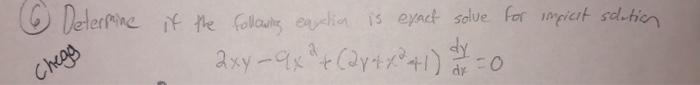 ⑥ Determine if the following equation is exact solve for impicit solution
Chegg
2xy - 9x² + (2y + x² + 1) dy/dx = 0